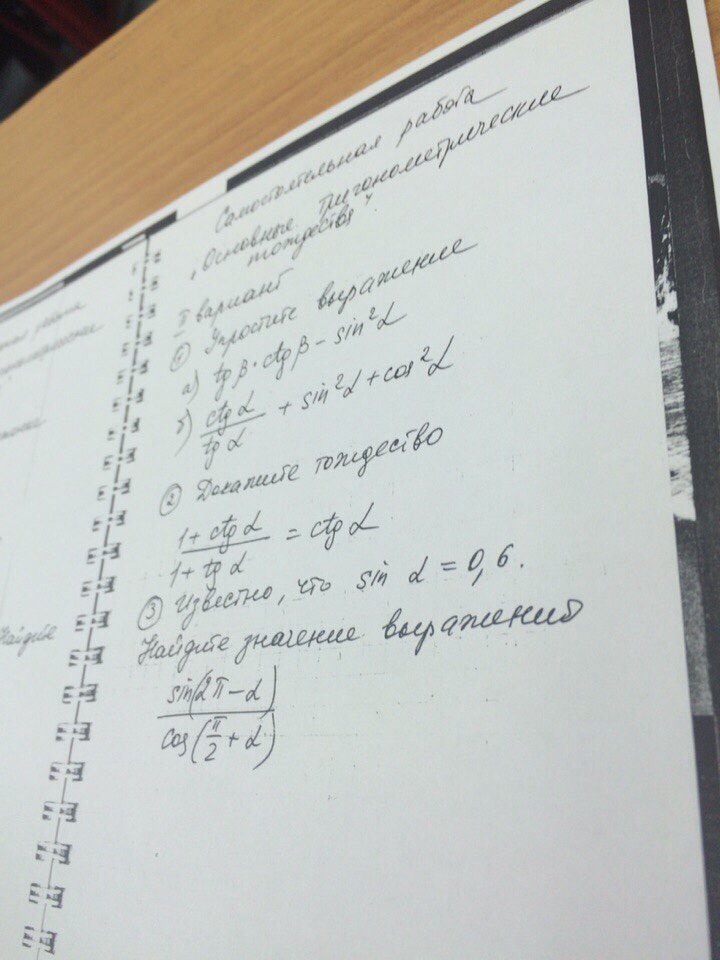 Самостоятельная работа
„Основные тригонометрические
тождества".
II вариант
① Упростите выражение
а) tg β · ctg β − sin²α
б) ctg α / tg α + sin²α + cos²α
② Докажите тождество
1 + ctg α / 1 + tg α = ctg α
③ Известно, что sin α = 0,6.
Найдите значение выражения
sin(2π − α)
cos(π/2 + α)